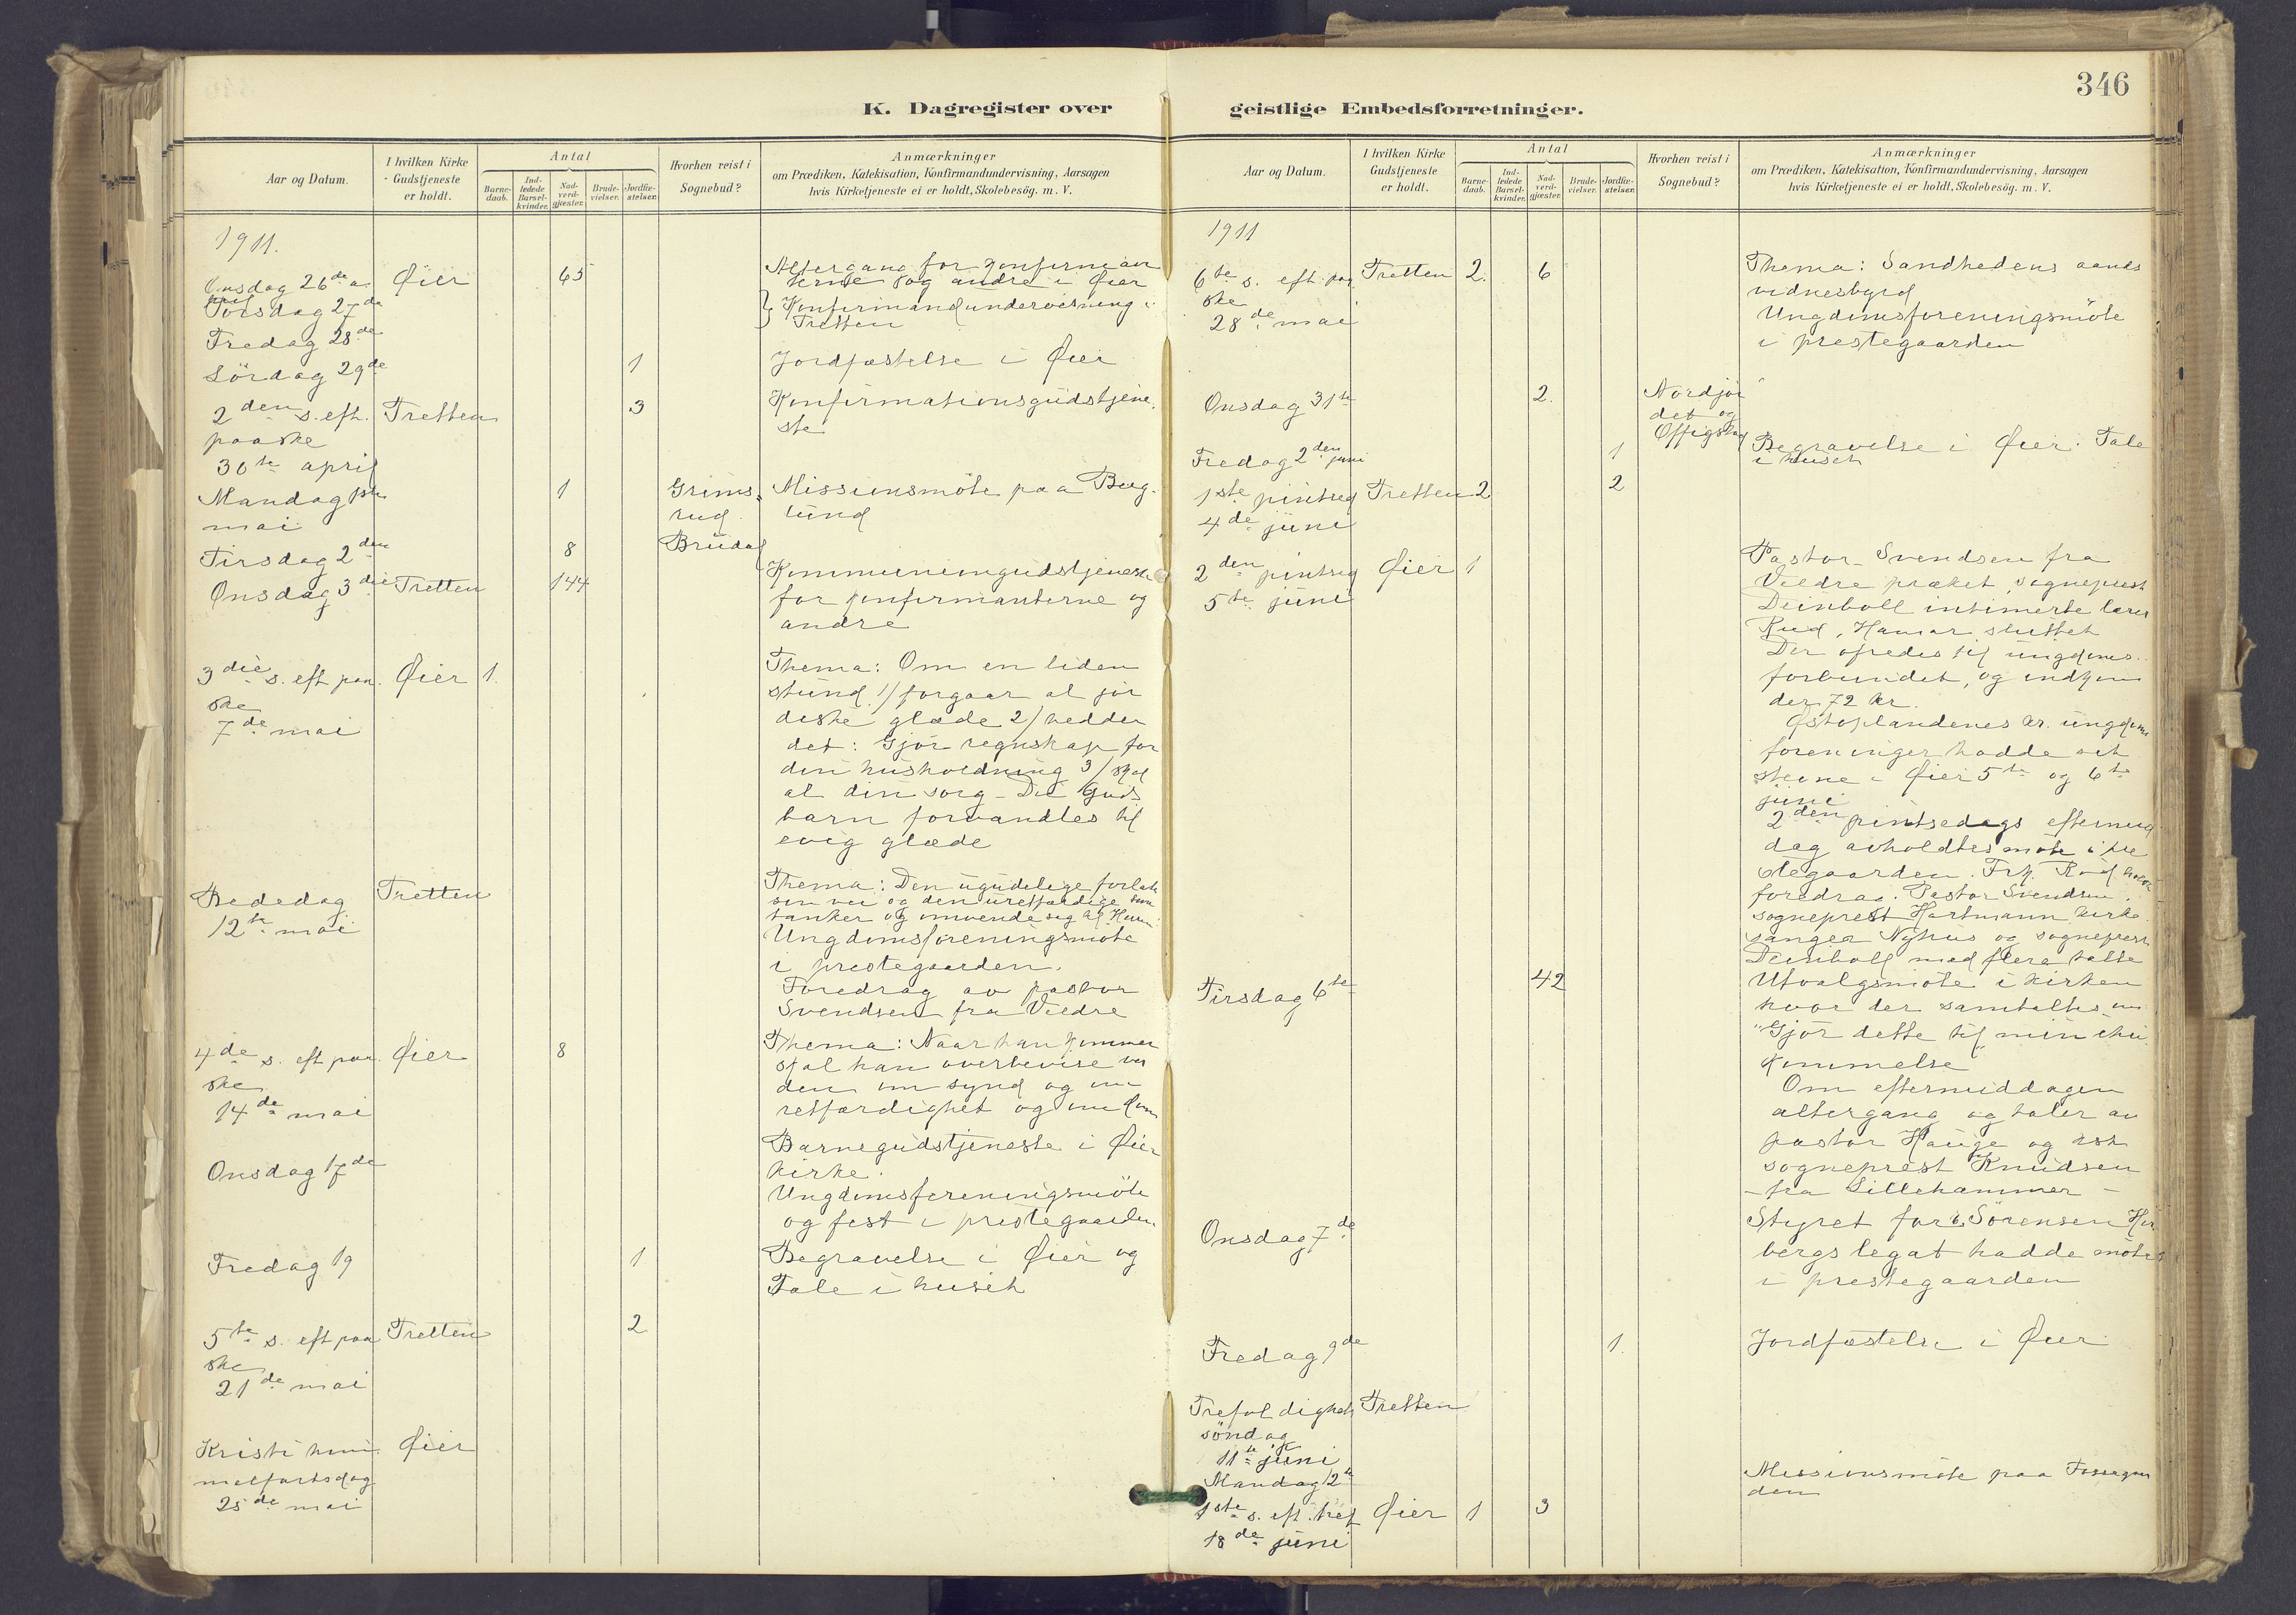 346
K. Dagregister over geistlige Embedsforretninger.
Aar og Datum.
I hvilken Kirke Gudstjeneste er holdt.
Antal
Barnedaab.
Indledede Barselkvinder.
Nadverdgjæster.
Brudevielser.
Jordfæstelser.
Hvorhen reist i Sognebud?
Anmærkninger
om Prædiken, Katekisation, Konfirmandundervisning, Aarsagen
hvis Kirketjeneste ei er holdt, Skolebesög. m. V.
1911.
Onsdag 26de a-
pril
Øier
65
Altergang for konfirman
terne og andre i Øier
Torsdag 27de
Konfirmandundervisning i
Tretten
Fredag 28de
Lördag 29de
1
Jordfæstelse i Øier
2den s. eft.
paaske
30te april
Tretten
3
Konfirmationsgudstjene-
ste
Mandag 1ste
mai
1
Grims-
rud
Missionsmöte paa Berg-
lund
Tirsdag 2den
8
Brudal
Onsdag 3die
Tretten
144
Kommuniongudstjeneste
for konfirmanterne og
andre
3die s. eft paa-
ske
7de mai
Øier
1.
Thema: Om en liden
stund 1/ forgaar al jor
diske glæde 2/ hedder
det: Gjör regnskap for
din husholdning 3/ skal
al din sorg - Du Guds
barn forvandles til
evig glæde
Bededag
12te mai
Tretten
Thema: Den ugudelige forlate
sin vei og den uretfærdige sine
tanker og omvende sig til Herren
Ungdomsforeningsmöte
i prestegaarden.
Foredrag av pastor
Svendsen fra Veldre
4de s. eft paa-
ske
14de mai
Øier
8
Thema: Naar han kommer
skal han overbevise ver
den om synd og om
retfærdighet og om dom
Onsdag 17de
Barnegudstjeneste i Øier
kirke.
Ungdomsforeningsmöte
og fest i prestegaarden.
Fredag 19
1
Begravelse i Øier og
Tale i huset
5te s. eft paa
ske
21de mai
Tretten
2
Kristi him-
melfartsdag
25de mai
Øier
Aar og Datum.
I hvilken Kirke Gudstjeneste er holdt.
Antal
Barnedaab.
Indledede Barselkvinder.
Nadverdgjæster.
Brudevielser.
Jordfæstelser.
Hvorhen reist i Sognebud?
Anmærkninger
om Prædiken, Katekisation, Konfirmandundervisning, Aarsagen
hvis Kirketjeneste ei er holdt, Skolebesög. m. V.
1911
6te s. eft paa
ske
28de mai
Tretten
2.
6
Thema: Sandhedens aands
vidnesbyrd
Ungdomsforeningsmöte
i prestegaarden
Onsdag 31te
2.
Nordjor
det og
Fredag 2den juni
1
Begravelse i Øier. Tale
i huset
1ste pintsed
4de juni
Tretten
2
2
2den pintsed
5te juni
Øier
1
Pastor Svendsen fra
Veldre præket, sogneprest
Deinboll intimerte lærer
Rud, Hamar sluttet
Der ofredes til ungdoms-
forbundet, og indkom
der 72 kr.
Østoplandenes kr. ungdoms
foreninger hadde set
stevne i Øier 5te og 6te
juni
2den pintsedags eftermid
dag avholdtes möte i pre
stegaarden. Frk. Rud holdt
foredrag. Pastor Svendsen,
sogneprest Hartmann, kirke
sanger Nyhus og sogneprest
Deinboll med flere talte
Tirsdag 6te
42
Utvalgsmöte i kirken
hvor der samtaltes om
"Gjör dette til min ihu
kommelse
Om eftermiddagen
altergang og taler av
pastor Hauge og res.
sogneprest Knudsen
- fra Lillehammer -
Onsdag 7de
Styret for Sörensen
bergs legat hadde möte
i prestegaarden
Fredag 9de
1.
Jordfæstelse i Øier
Trefoldigheds
söndag
11te juni
Tretten
Mandag 12te
Missionsmöte paa Fossegaar
den
1ste s. eft. tref
18de juni
Øier
1
3